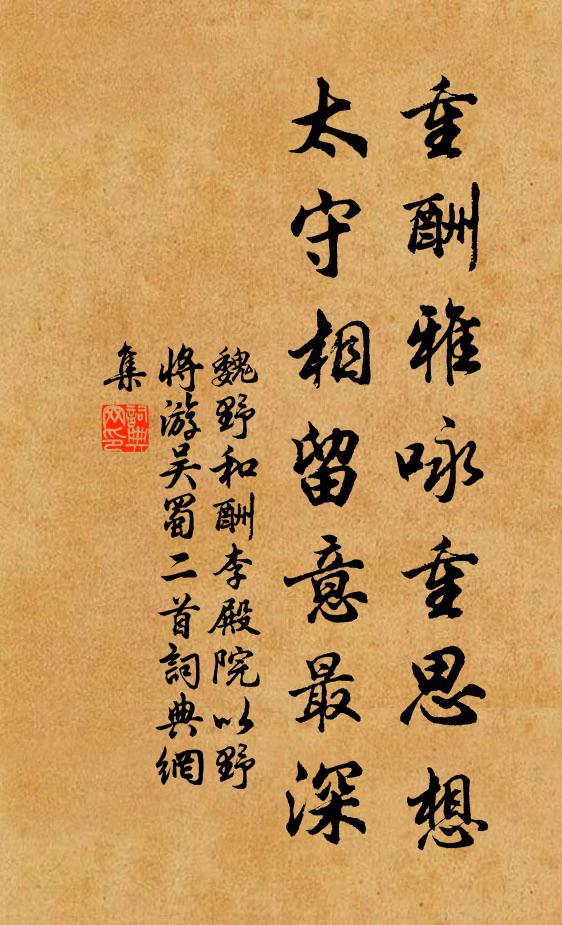 重酬雅咏重思想
太守相留意最深
魏野和酬李殿院以野
将游吴蜀二首詞典網
集
詞典網印